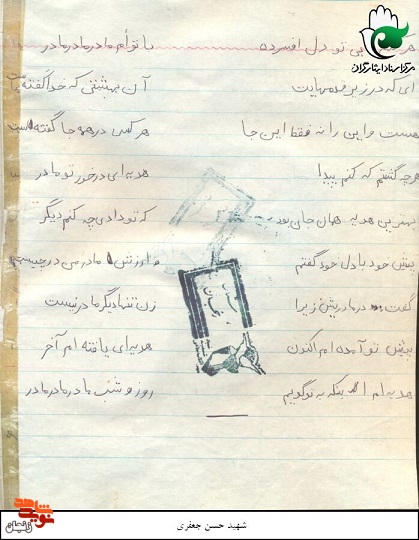 مرکز اسناد ایثارگران
بی تو دل افسرده با توأم مادر مادر مادر
ای که در زیر قدمهایت آن بهشتی که خدا گفته
هست و این را نه فقط این جا هر کس در همه جا گفته است
هر چه گشتم که کنم پیدا هدیه ای در خور تو مادر
بهترین هدیه همان جان بود که تو دادی چه کنم دیگر
پیش خود با دل خود گفتم مادر من در
گفت مادر زیرا زن تنها دیگر مادر نیست
پیش تو آمده ام اکنون هدیه ای یافته ام آخر
هدیه ام اینکه به تو گویم روز و شب مادر مادر مادر
نوید شاهد
زنجان
شهید حسن جعفری